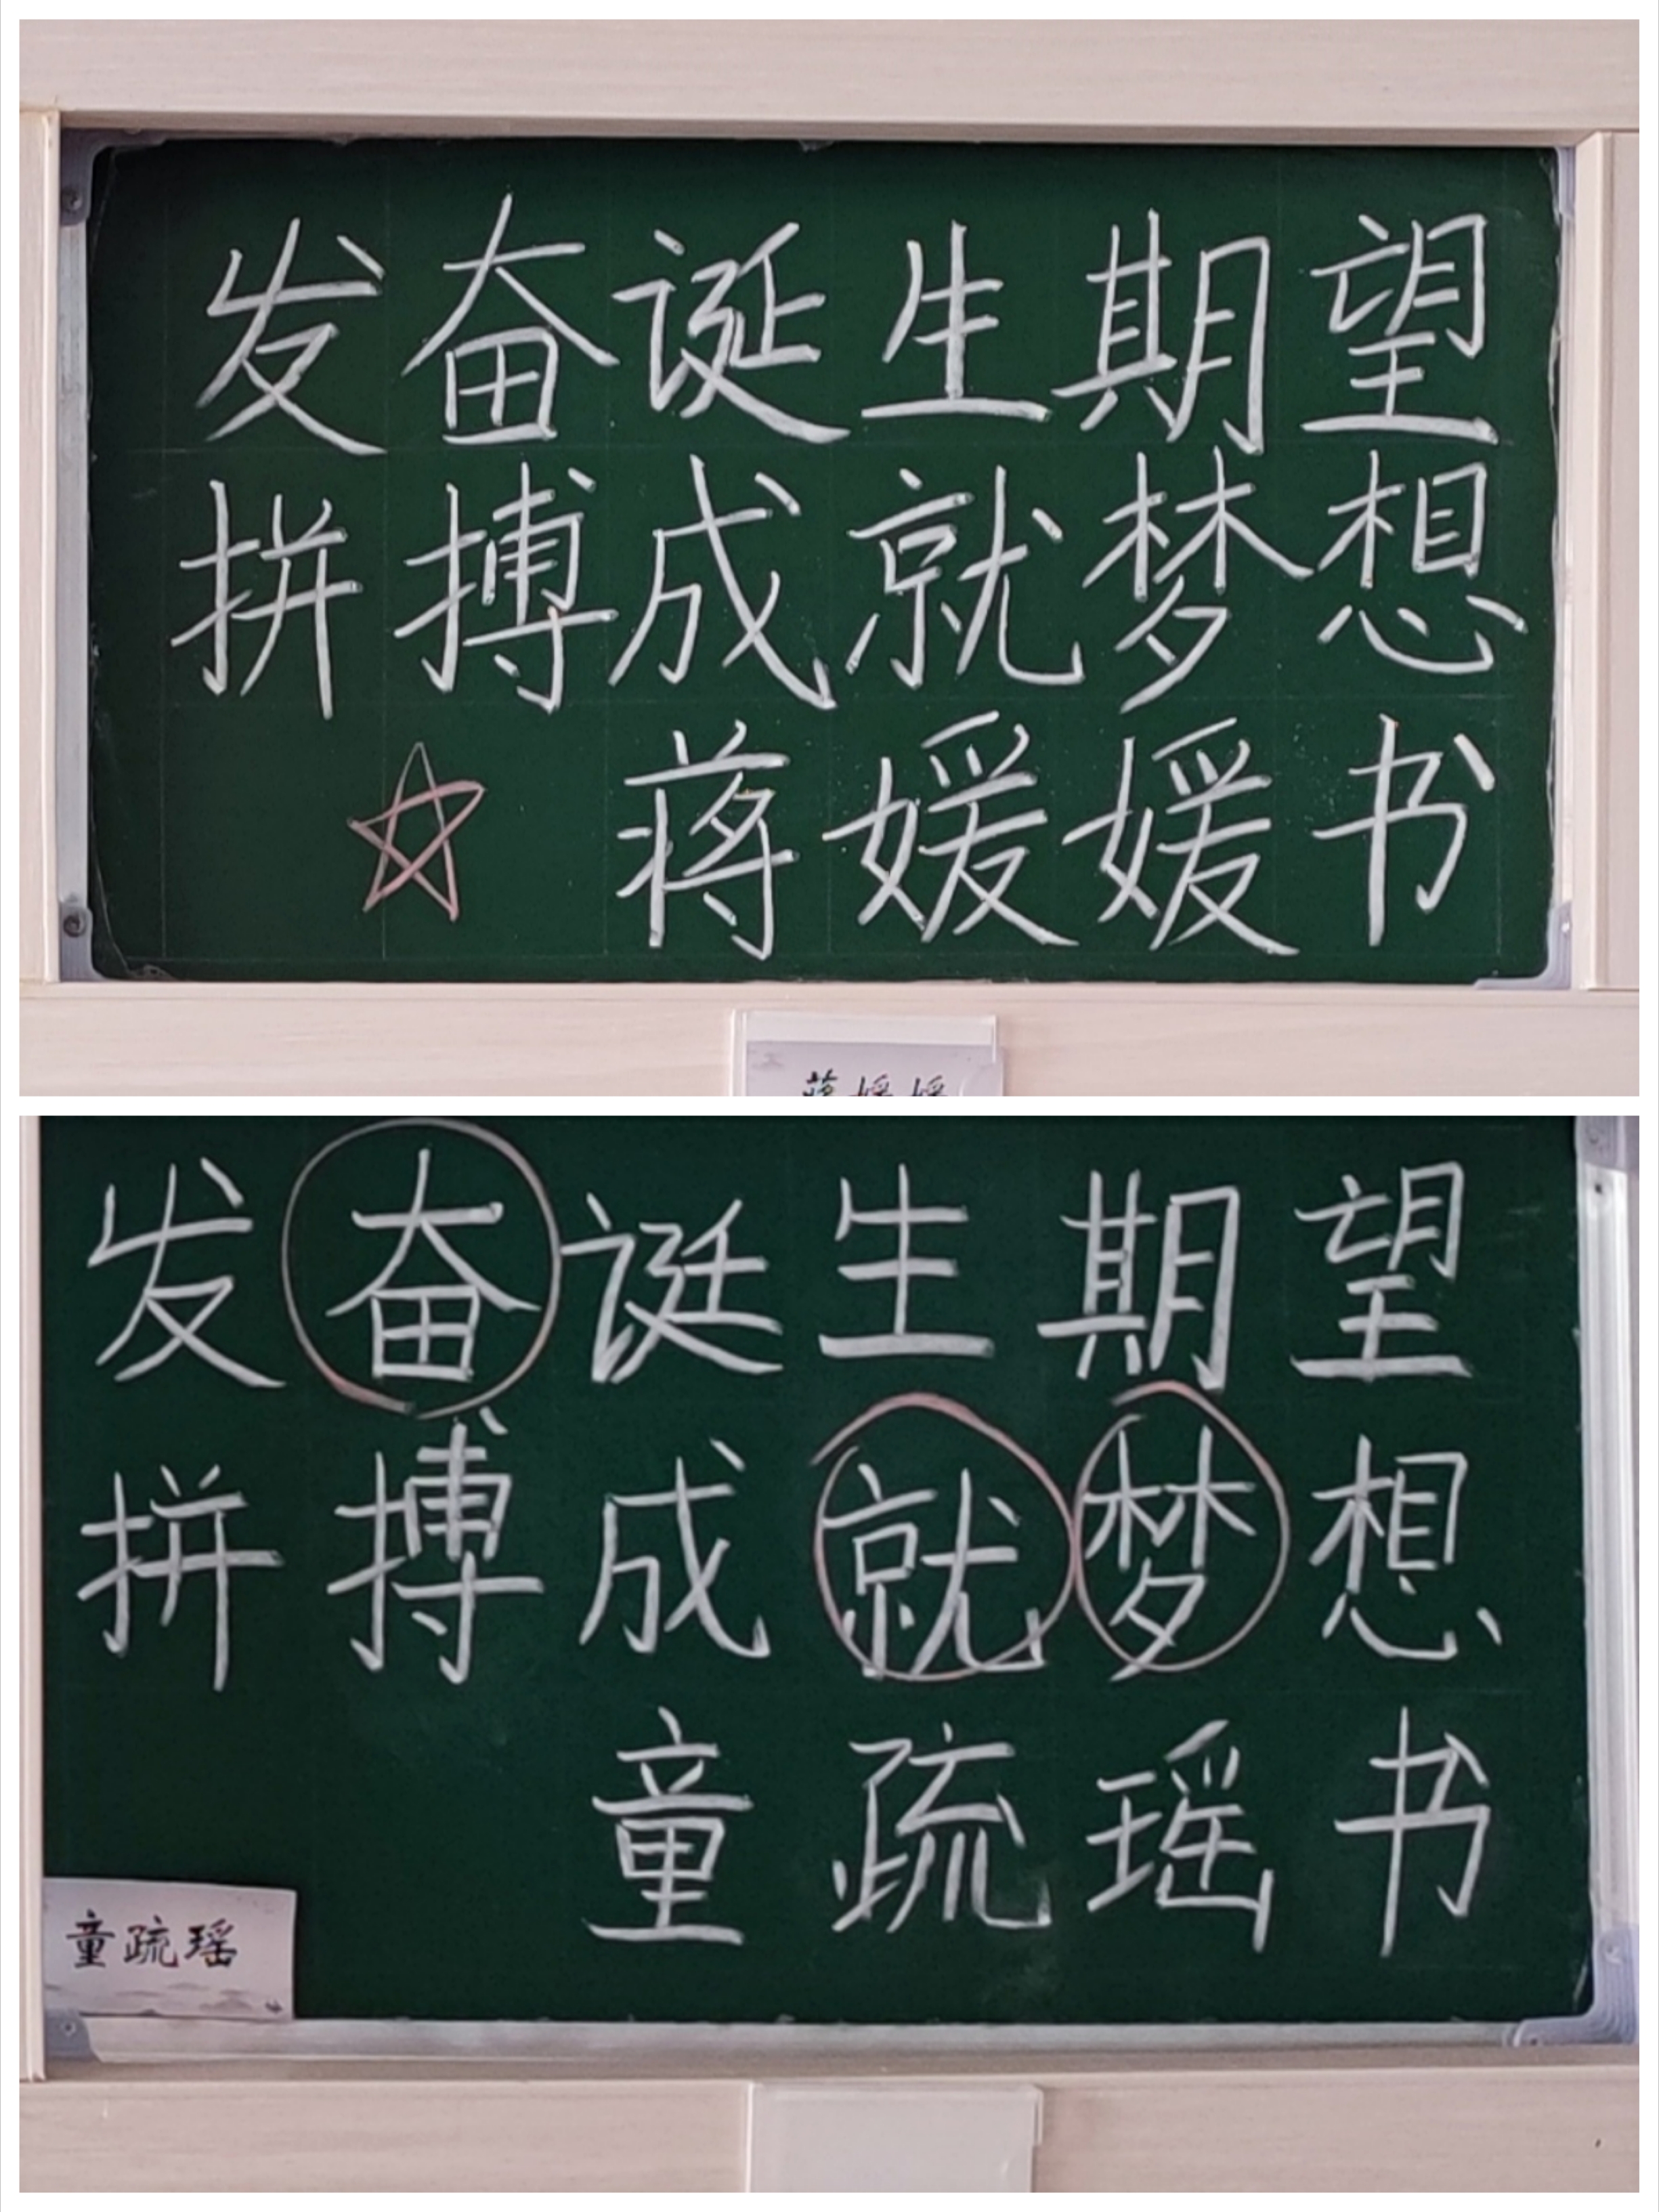 发奋诞生期望
拼搏成就梦想
蒋媛媛书
蒋媛媛
发奋诞生期望
拼搏成就梦想
童疏瑶书
童疏瑶